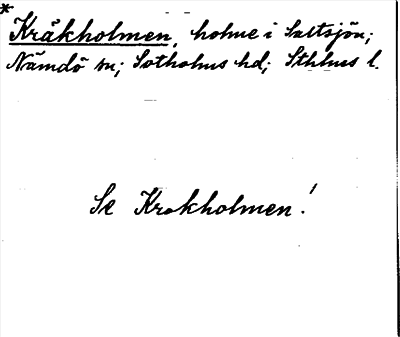 * Kråkholmen, holme i Saltsjön;
Nämdö sn; Sotholms hd; Sthlms l.
Se Krokholmen!